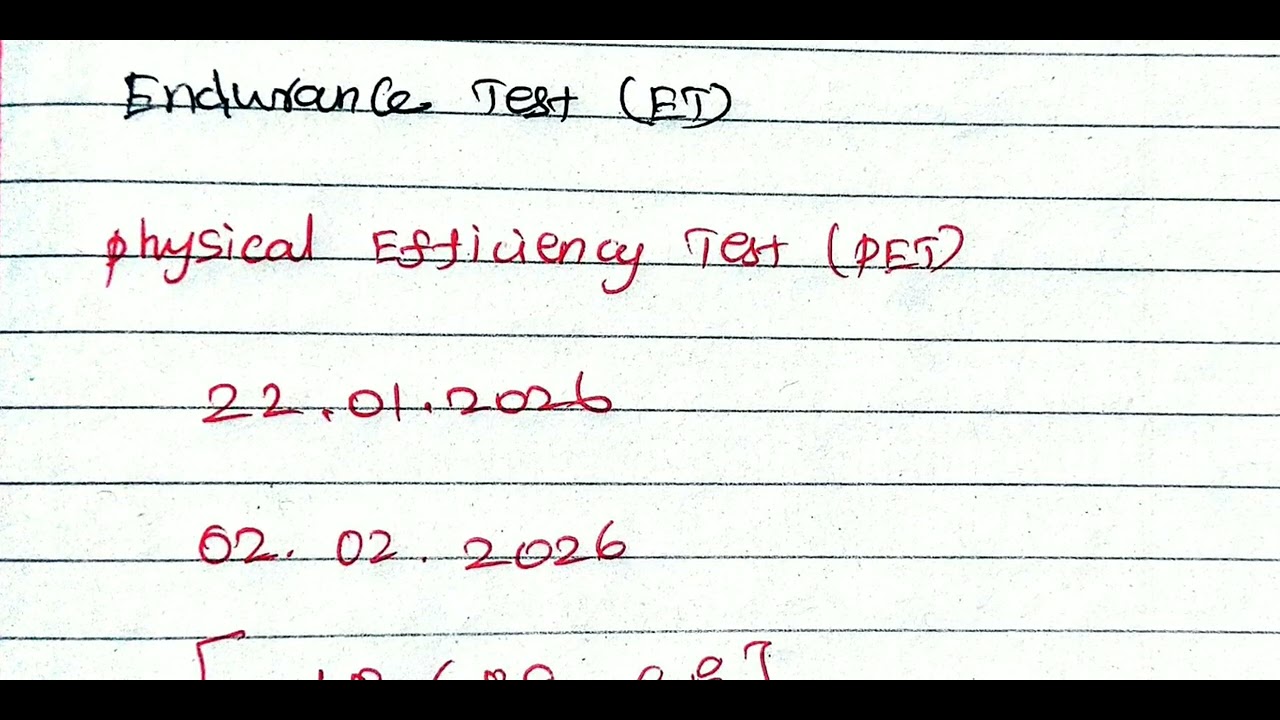 Endurance Test (ET)
Physical Efficiency Test (PET)
22.01.2026
02.02.2026